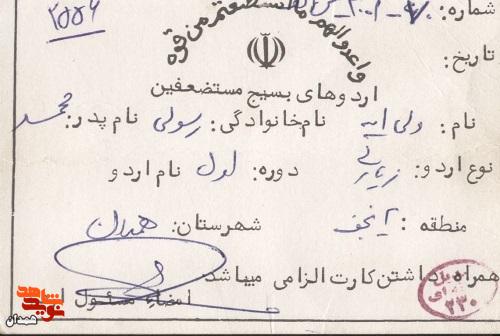 شماره:
۲۵۵۶
واعدوالهم مااستطعتم من قوه
تاریخ:
اردوهای بسیج مستضعفین
نام: ولی اله نام‌خانوادگی: رسولی نام پدر: محمد
نوع اردو: زیارتی دوره: اول نام اردو
منطقه: شهرستان: همدان
همراه داشتن کارت الزامی میباشد
امضاء مسئول
۲۳۰
نوید شاهد
همدان